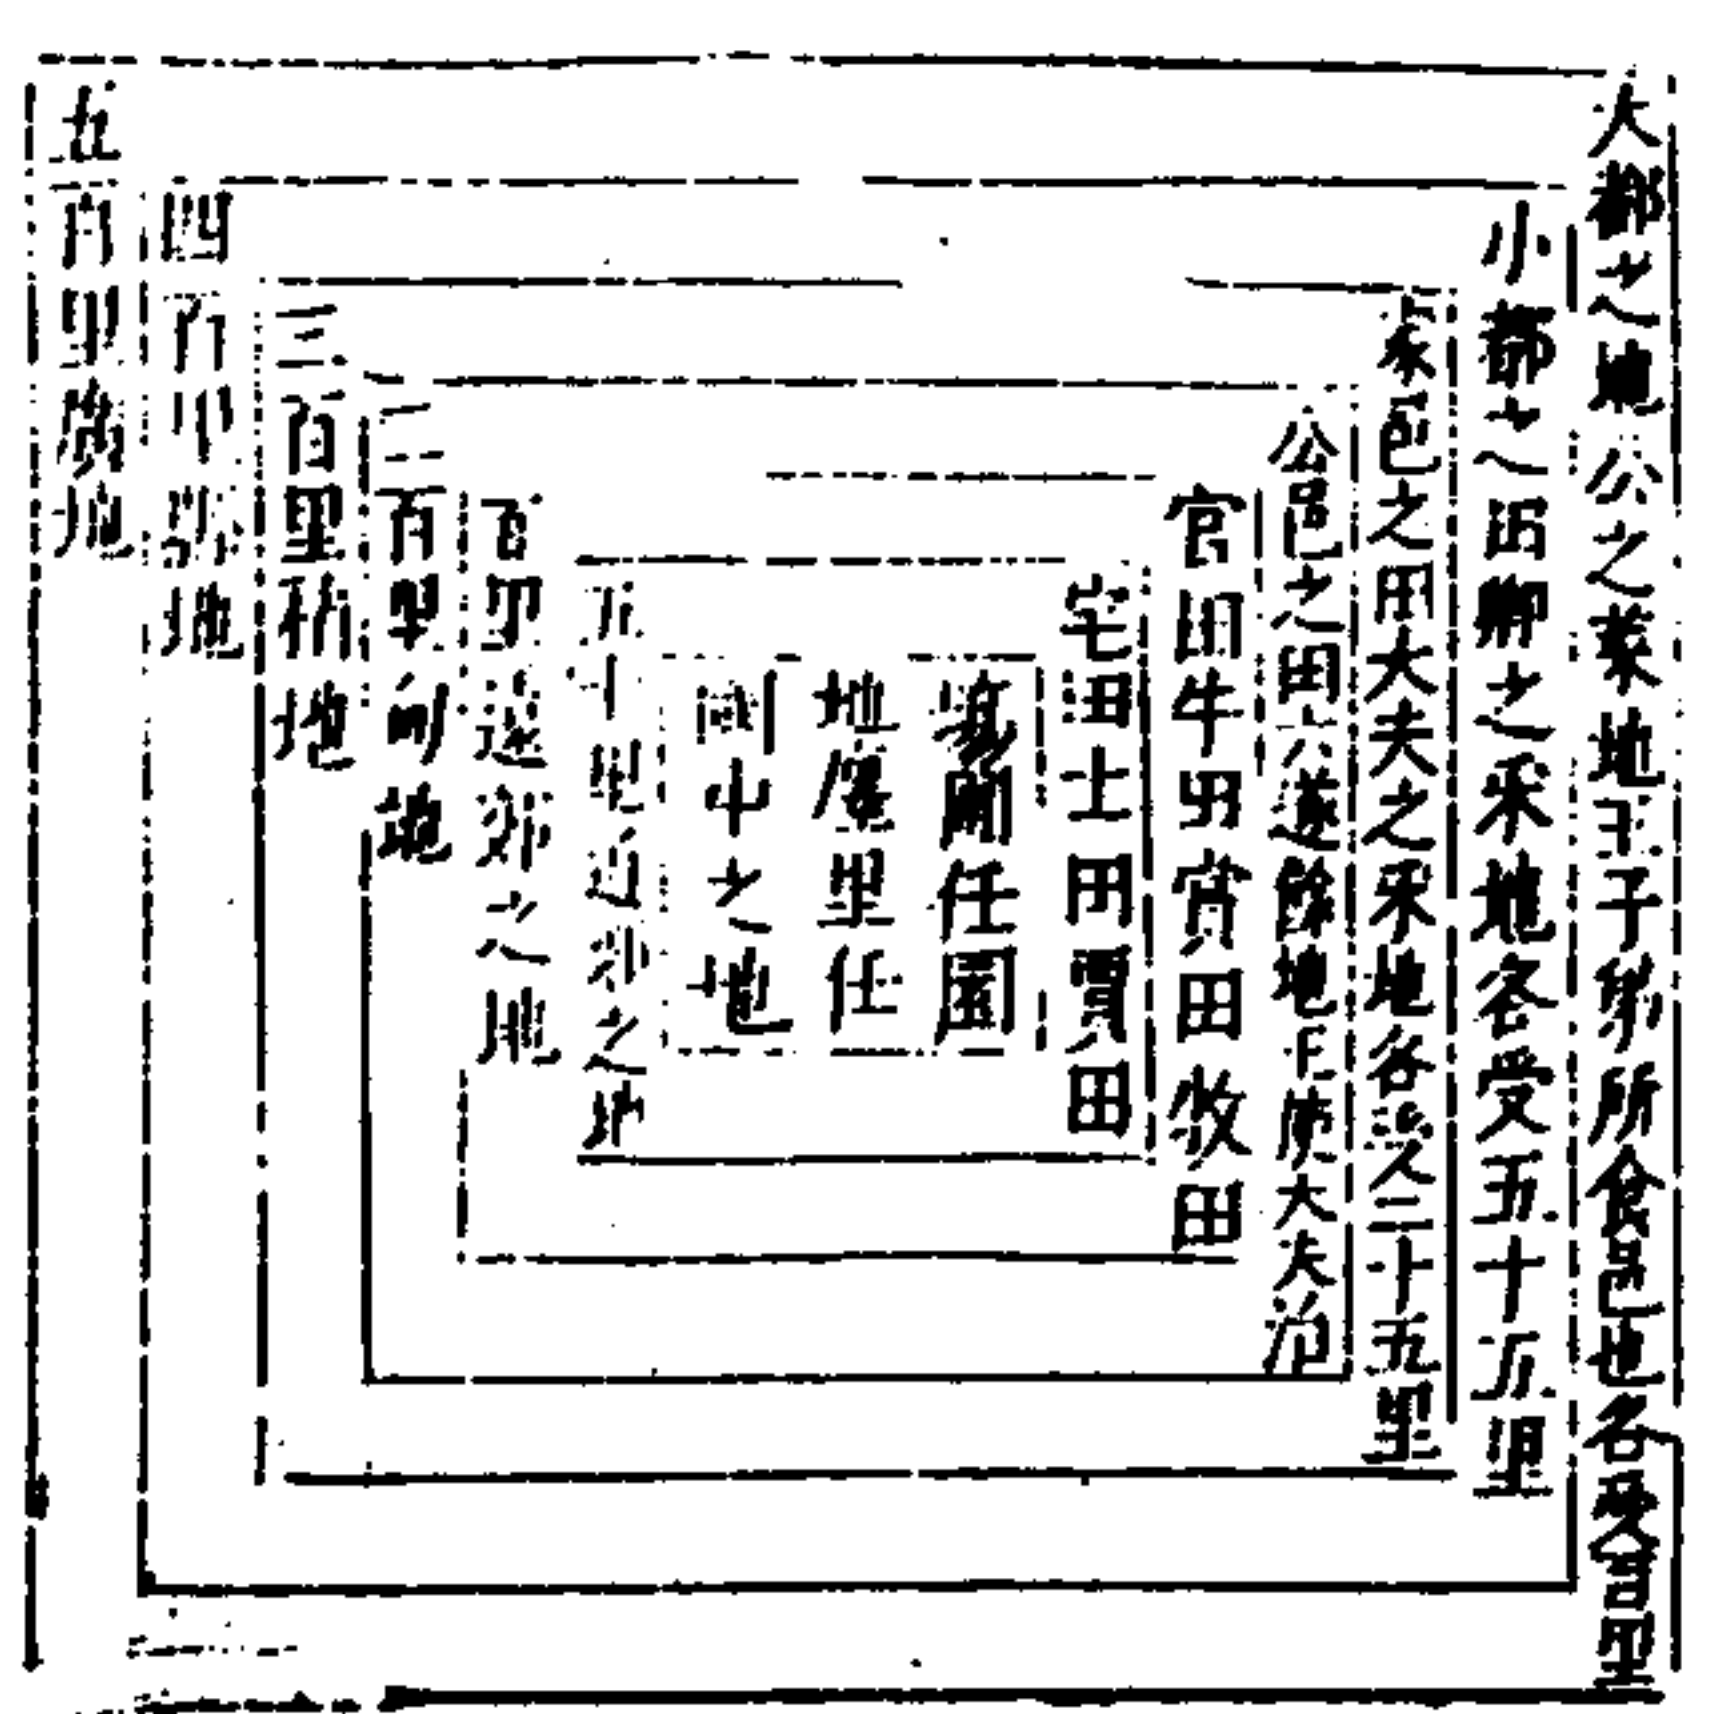 大都之地公之菜地王子弟所食邑也各受百里
小都之田卿之采地各受五十五里
家邑之田大夫之采地各受二十五里
公邑之田六遂餘地王使大夫治
官田牛田賞田牧田
宅田士田賈田
場圃任園
地廛里任
國中之地
五十里近郊之地
百里遠郊之地
二百里甸地
三百里稍地
四百里縣地
五百里畺地